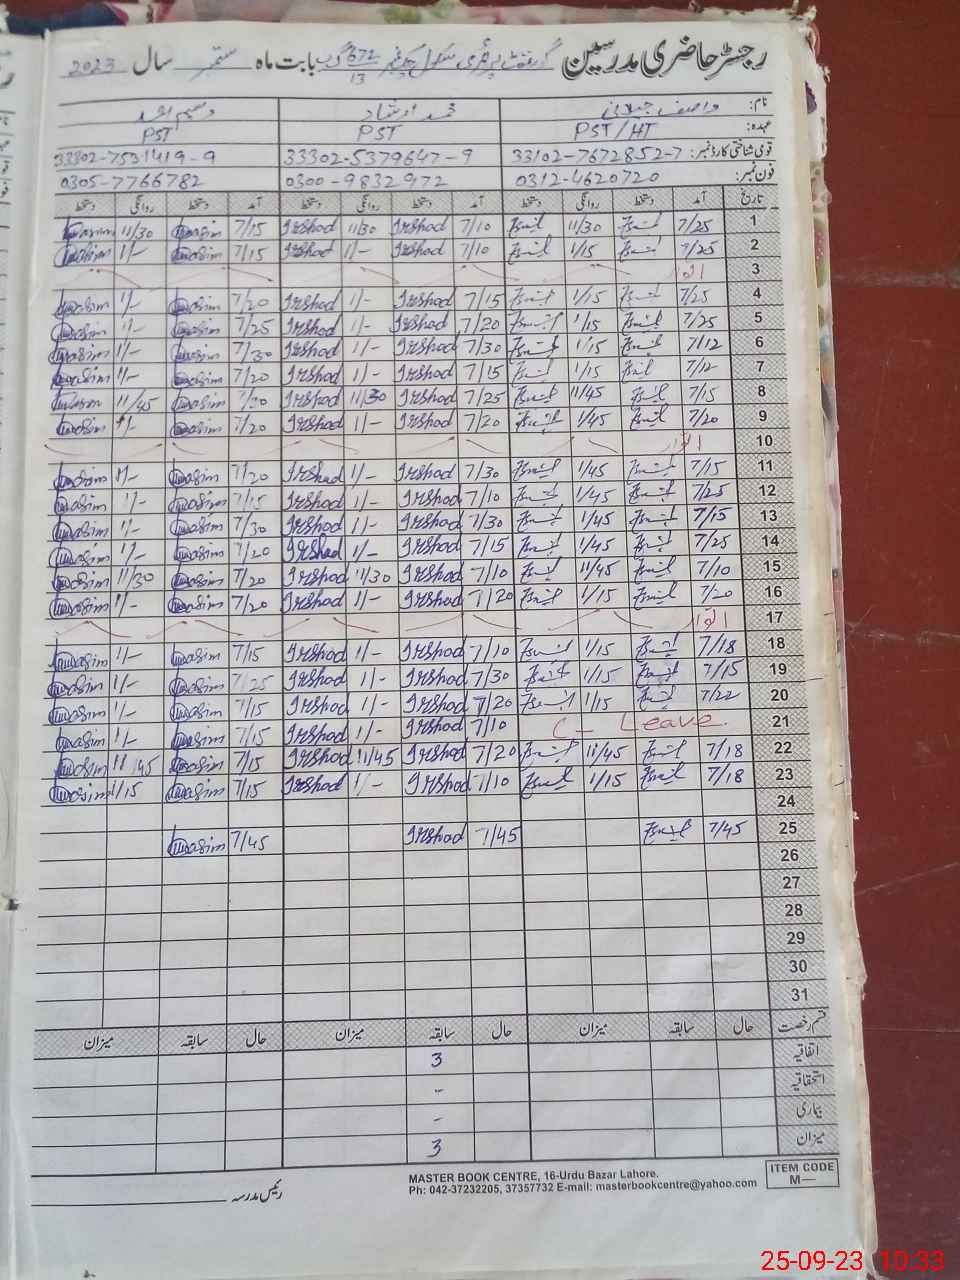 رجسٹر حاضری مدرسین گورنمنٹ پرائمری سکول چک نمبر 672/13 گ ب بابت ماہ ستمبر سال 2023
نام: واصف جیلانی محمد ارشاد وسیم احمد
عہدہ: PST/HT PST PST
قومی شناختی کارڈ نمبر: 33102-7672852-7 33302-5379647-9 33302-7531419-9
فون نمبر: 0312-4620720 0300-9832972 0305-7766782
تاریخ آمد دستخط روانگی دستخط آمد دستخط روانگی دستخط آمد دستخط روانگی دستخط
1 7/25 11/30 7/10 Irshad 11/30 Irshad 7/15 Wasim 11/30 Wasim
2 7/25 1/15 7/10 Irshad 1/- Irshad 7/15 Wasim 1/- Wasim
3 اتوار
4 7/25 1/15 7/15 Irshad 1/- Irshad 7/20 Wasim 1/- Wasim
5 7/25 1/15 7/20 Irshad 1/- Irshad 7/25 Wasim 1/- Wasim
6 7/12 1/15 7/30 Irshad 1/- Irshad 7/30 Wasim 1/- Wasim
7 7/12 1/15 7/15 Irshad 1/- Irshad 7/20 Wasim 1/- Wasim
8 7/15 11/45 7/25 Irshad 11/30 Irshad 7/20 Wasim 11/45 Wasim
9 7/20 1/45 7/20 Irshad 1/- Irshad 7/20 Wasim 1/- Wasim
10 اتوار
11 7/15 1/45 7/30 Irshad 1/- Irshad 7/20 Wasim 1/- Wasim
12 7/25 1/45 7/10 Irshad 1/- Irshad 7/15 Wasim 1/- Wasim
13 7/15 1/45 7/30 Irshad 1/- Irshad 7/30 Wasim 1/- Wasim
14 7/25 1/45 7/15 Irshad 1/- Irshad 7/20 Wasim 1/- Wasim
15 7/10 11/45 7/10 Irshad 11/30 Irshad 7/20 Wasim 11/30 Wasim
16 7/20 1/15 7/20 Irshad 1/- Irshad 7/20 Wasim 1/- Wasim
17 اتوار
18 7/18 1/15 7/10 Irshad 1/- Irshad 7/15 Wasim 1/- Wasim
19 7/15 1/15 7/30 Irshad 1/- Irshad 7/25 Wasim 1/- Wasim
20 7/22 1/15 7/20 Irshad 1/- Irshad 7/15 Wasim 1/- Wasim
21 C- Leave 7/10 Irshad 1/- Irshad 7/15 Wasim 1/- Wasim
22 7/18 11/45 7/20 Irshad 11/45 Irshad 7/15 Wasim 11/45 Wasim
23 7/18 1/15 7/10 Irshad 1/- Irshad 7/15 Wasim 1/15 Wasim
24
25 7/45 7/45 Irshad 7/45 Wasim
26
27
28
29
30
31
قسم رخصت حال سابقہ میزان حال سابقہ میزان حال سابقہ میزان
اتفاقیہ 3
استحقاقیہ -
بیماری -
میزان 3
رئیس مدرسہ
MASTER BOOK CENTRE, 16-Urdu Bazar Lahore.
Ph: 042-37232205, 37357732 E-mail: masterbookcentre@yahoo.com
ITEM CODE
M—
25-09-23 10:33